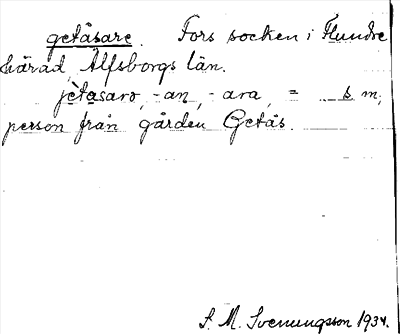 getåsare. Fors socken i Flundre
härad, Älfsborgs län.
jètasarɔ, -an, -ara, = s. m;
person från gården Getås.
S. M. Svenungsson 1934.